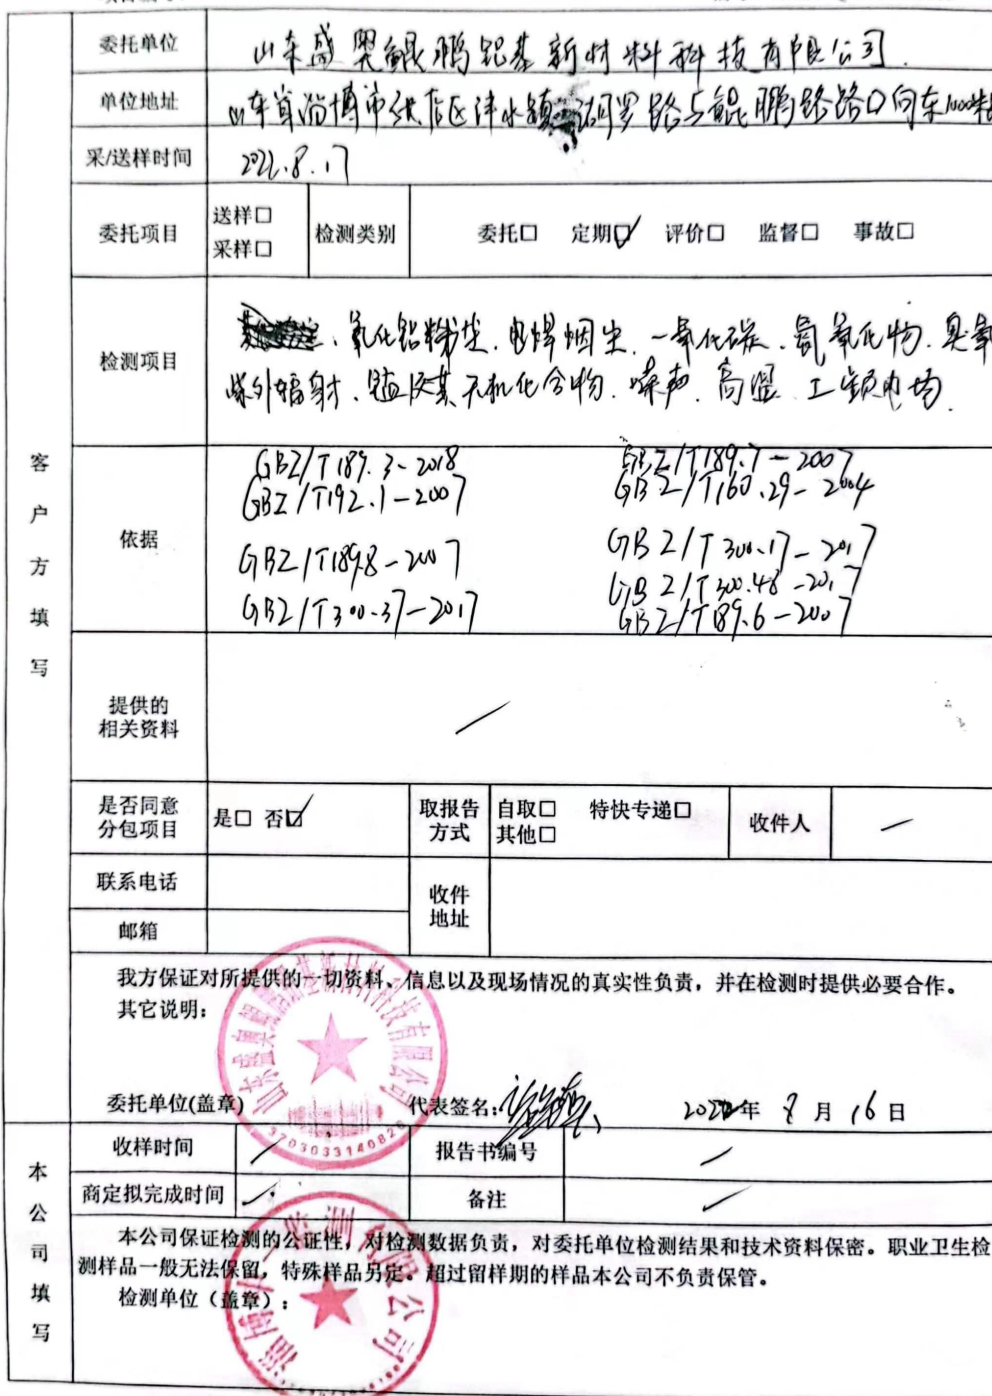 委托单位 山东盛奥鲲鹏铝基新材料科技有限公司
单位地址 山东省淄博市张店区沣水镇 路与鲲鹏路路口向东1000米
采/送样时间 2022.8.17
委托项目 送样□ 采样□ 检测类别 委托□ 定期☑ 评价□ 监督□ 事故□
检测项目 、氧化铝粉尘、电焊烟尘、一氧化碳、氮氧化物、臭氧
紫外辐射、锰及其无机化合物、噪声、高温、工频电场
客户方填写
依据
GBZ/T189.3-2018 GBZ/T189.7-2007
GBZ/T192.1-2007 GBZ/T160.29-2004
GBZ/T189.8-2007 GBZ/T300.17-2017
GBZ/T300.48-2017
GBZ/T300.37-2017 GBZ/T189.6-2007
提供的
相关资料 /
是否同意
分包项目 是□ 否☑ 取报告
方式 自取□ 特快专递□
其他□ 收件人 /
联系电话 收件
地址
邮箱
我方保证对所提供的一切资料、信息以及现场情况的真实性负责，并在检测时提供必要合作。
其它说明：
山东盛奥鲲鹏铝基新材料科技有限公司
3703033140820
委托单位(盖章) 代表签名： 2022年 8月 16日
本公司填写
收样时间 / 报告书编号 /
商定拟完成时间 / 备注 /
本公司保证检测的公证性，对检测数据负责，对委托单位检测结果和技术资料保密。职业卫生检
测样品一般无法保留，特殊样品另定。超过留样期的样品本公司不负责保管。
检测单位（盖章）：
淄博 有限公司